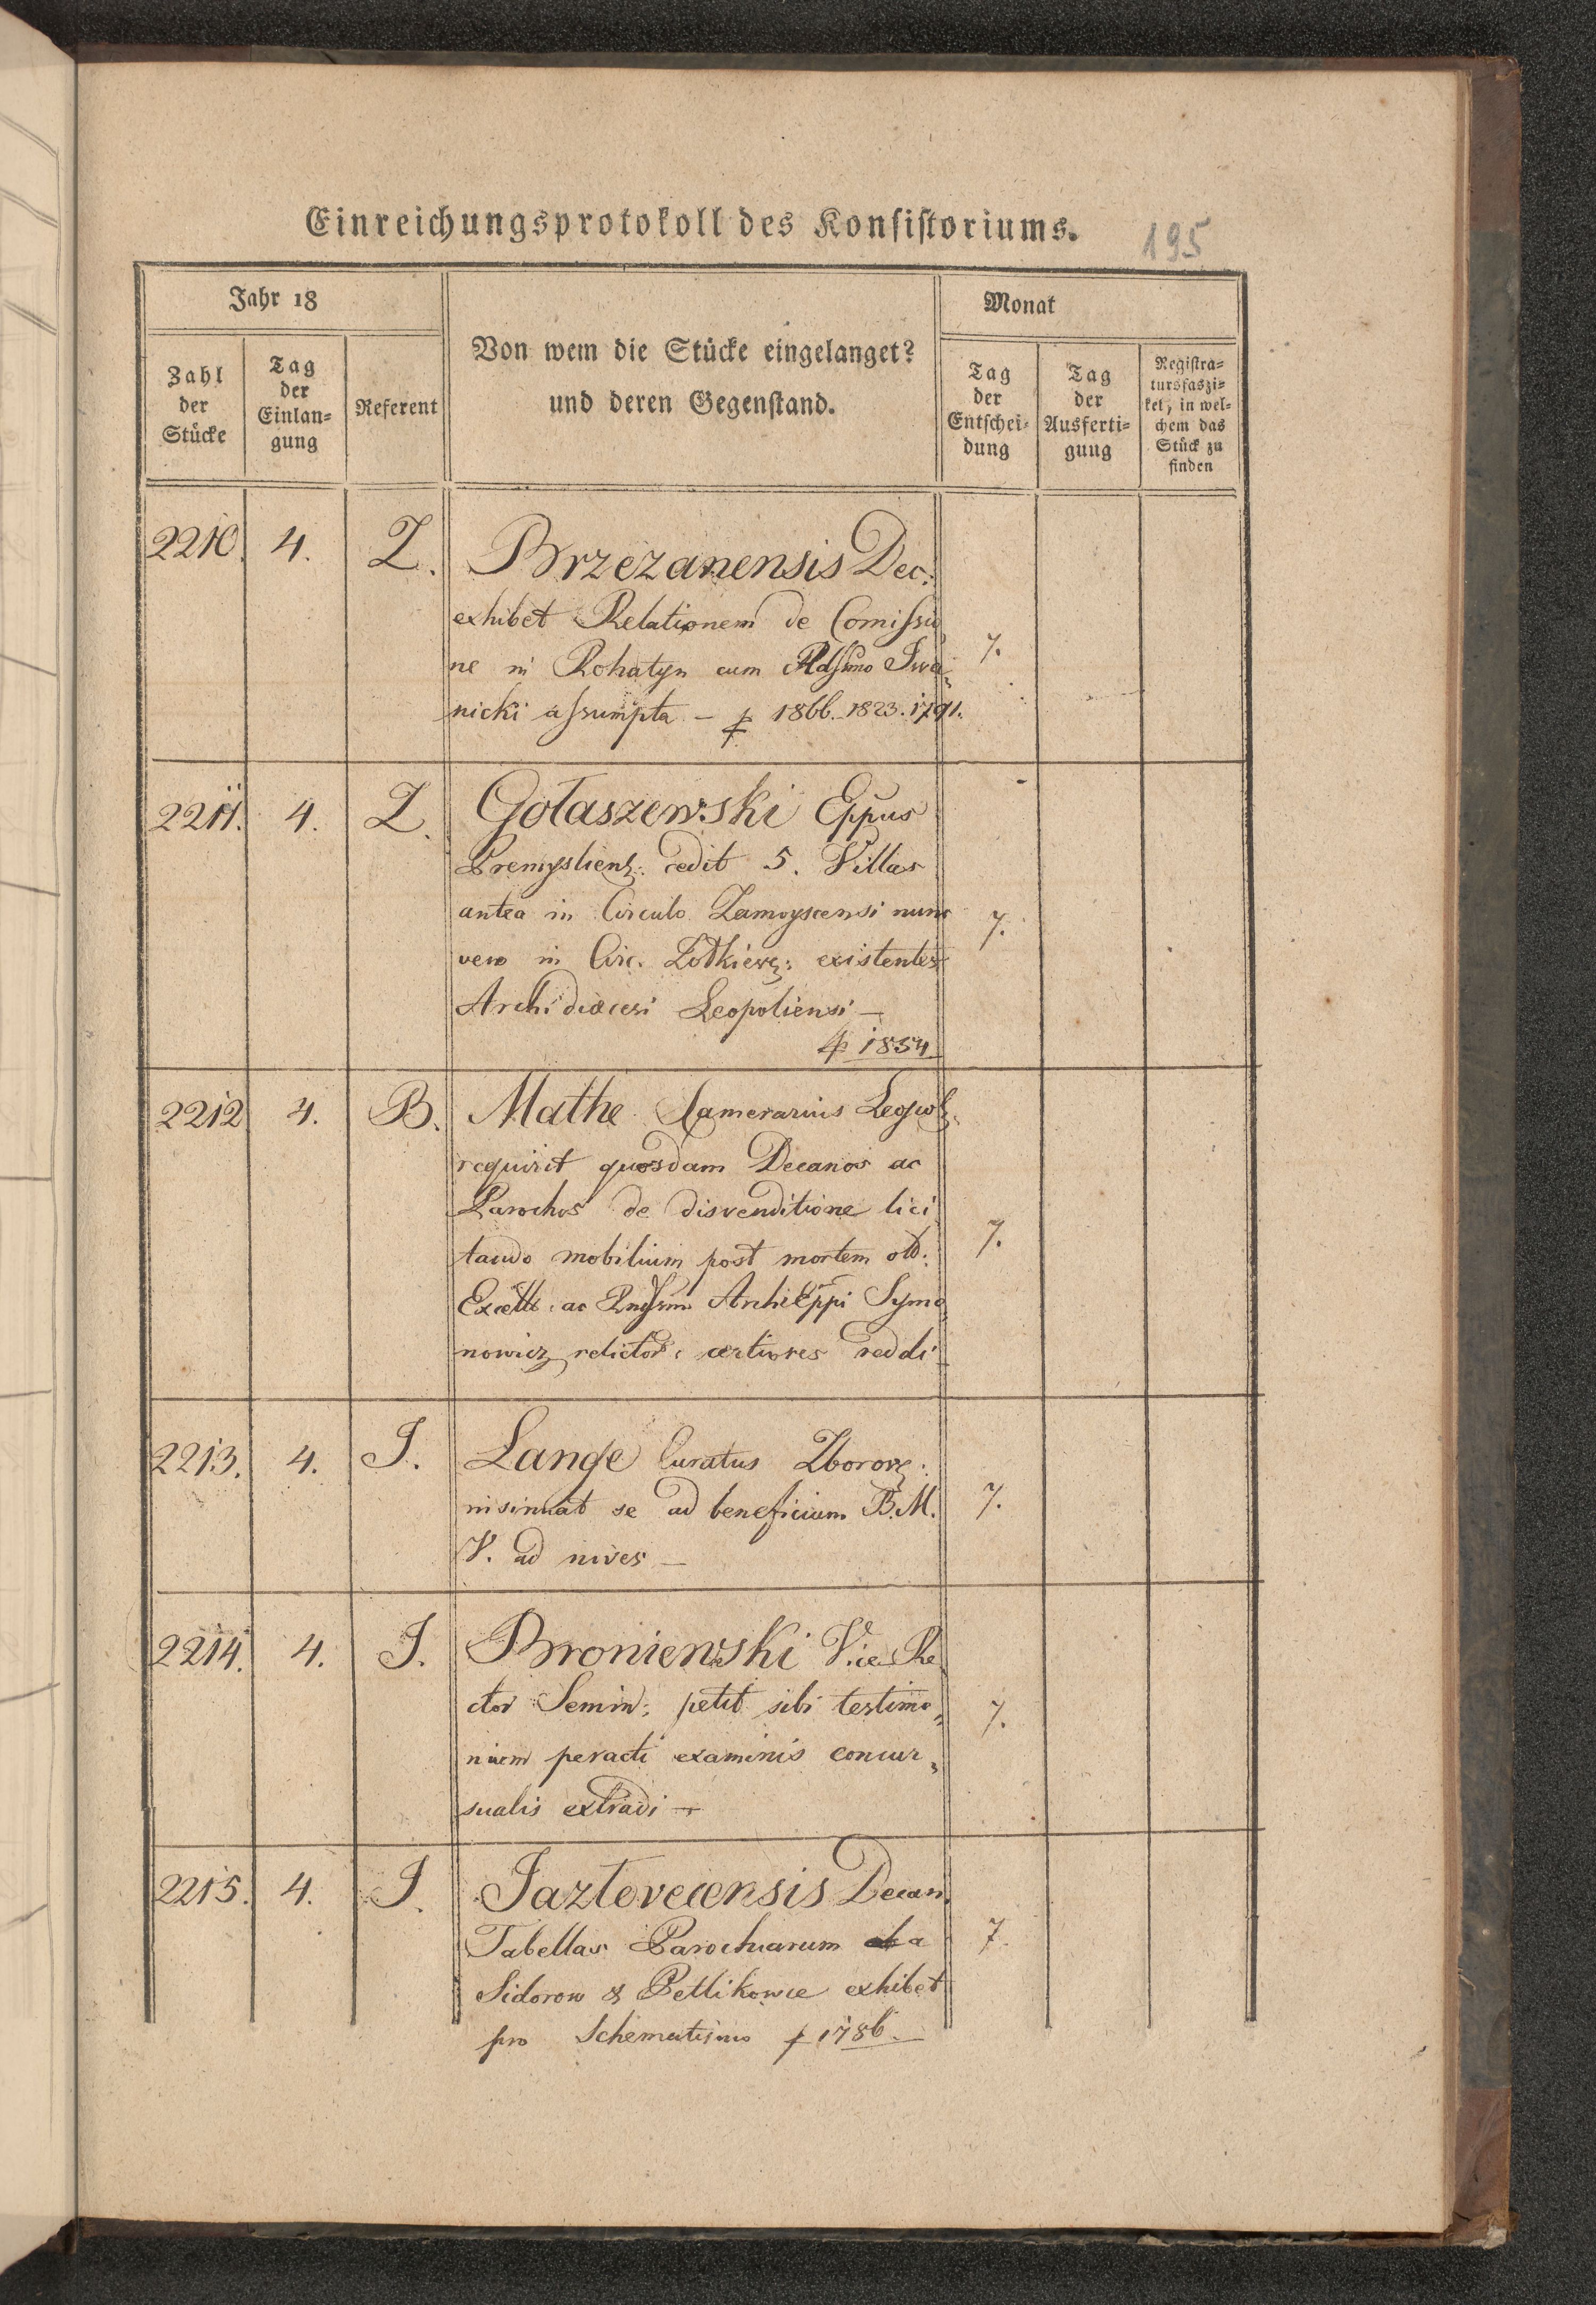 Einreichungsprotokoll des Konsistoriums.
195
Jahr 18
Monat
Zahl
der
Stücke
Tag
der
Einlan=
gung
Referent
Von wem die Stücke eingelanget?
und deren Gegenstand.
Tag
der
Entschei=
dung
Tag
der
Ausferti=
gung
Registra=
tursfaszi=
kel, in wel=
chem das
Stück zu
finden
2210. 4. Z. Brzezanensis Dec.
exhibet Relationem de Comissio
ne in Rohatyn cum Iwa
nicki assumpta – 1866. 1823. 1791.
7.
2211. 4. Z. Gołaszewski Eppus
Premysliens: cedit 5. Villas
antea in Circulo Zamoyscensi nunc
vero in Circ. Zołkiew: existentes
Archidiaecesi Leopoliensi –
1854
7.
2212 4. B. Mathe Camerarius Leopol:
requirit quosdam Decanos ac
Parochos de disvenditione lici
tando mobilium post mortem olb:
Excell: ac ArchiEppi Symo
nowicz relictor: certiores reddi
7.
2213. 4. J. Lange Curatus Zborow:
insinuat se ad beneficium B.M.
V. ad nives –
7.
2214. 4. J. Broniewski Vice Re
ctor Semin: petit sibi testimo„
nium peracti examinis concur„
sualis extradi –
7.
2215. 4. J. Jazłovecensis Decan.
Tabellas Parochiarum a
Sidorow & Petlikowce exhibet
pro Schematismo 1786.
7.